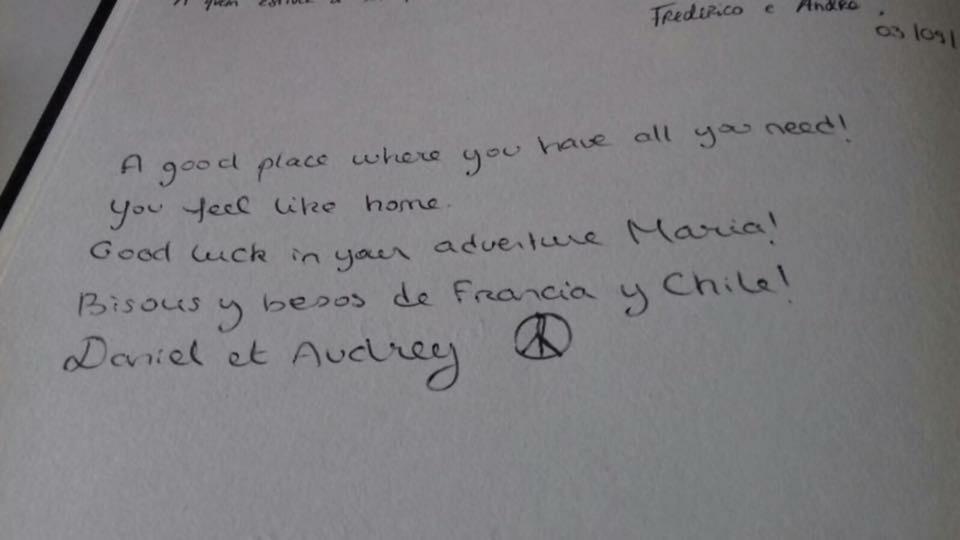 A quem
Frederico e Andre.
03/09/
A good place where you have all you need!
You feel like home.
Good luck in your adventure Maria!
Bisous y besos de Francia y Chile!
Daniel et Audrey